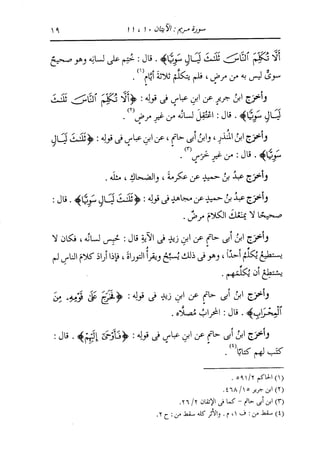 سورة مريم : الآيتان ١٠ ، ١١ ١٩
أَلَّا تُكَلِّمَ ٱلنَّاسَ ثَلَٰثَ لَيَالٍ سَوِيًّا﴾ . قال : خُتِم على لسانِه وهو صحيحٌ
سَوِىٌّ ليس به مِن مرضٍ ، فلم يتكلَّمْ ثلاثةَ أيامٍ(١) .
وأخرَج ابنُ جريرٍ عن ابنِ عباسٍ فى قولِه : ﴿أَلَّا تُكَلِّمَ ٱلنَّاسَ ثَلَٰثَ
لَيَالٍ سَوِيًّا﴾ . قال : اعتُقِل لسانُه من غيرِ مرضٍ(٢) .
وأخرَج ابنُ المنذرِ ، وابنُ أبى حاتمٍ ، عن ابنِ عباسٍ فى قولِه : ﴿ثَلَٰثَ لَيَالٍ
سَوِيًّا﴾ . قال : من غيرِ خَرَسٍ(٣) .
وأخرَج عبدُ بنُ حميدٍ عن عكرمةَ ، والضحاكِ ، مثلَه .
وأخرَج عبدُ بنُ حميدٍ عن مجاهدٍ فى قولِه : ﴿ثَلَٰثَ لَيَالٍ سَوِيًّا﴾ . قال :
صحيحًا لا يمنعُك الكلامَ مرضٌ .
وأخرَج ابنُ أبى حاتمٍ عن ابنِ زيدٍ فى الآيةِ قال : حُبِس لسانُه ، فكان لا
يستطيعُ يُكلِّمُ أحدًا ، وهو فى ذلك يُسبِّحُ ويقرأُ التوراةَ ، فإذا أراد كلامَ الناسِ لم
يستطِعْ أن يُكلِّمَهم .
وأخرَج ابنُ أبى حاتمٍ عن ابنِ زيدٍ فى قولِه : ﴿فَخَرَجَ عَلَىٰ قَوْمِهِۦ مِنَ
ٱلْمِحْرَابِ﴾ . قال : المحرابُ مُصلَّاه .
وأخرَج ابنُ أبى حاتمٍ عن ابنِ عباسٍ فى قولِه : ﴿فَأَوْحَىٰٓ إِلَيْهِمْ﴾ . قال :
كتَب لهم كتابًا(٤) .
(١) الحاكم ٥٩١/٢ .
(٢) ابن جرير ٤٦٨/١٥ .
(٣) ابن أبى حاتم - كما فى الإتقان ٢٦/٢ .
(٤) سقط من : ف ١ ، م . والأثر كله سقط من : ح ٢ .